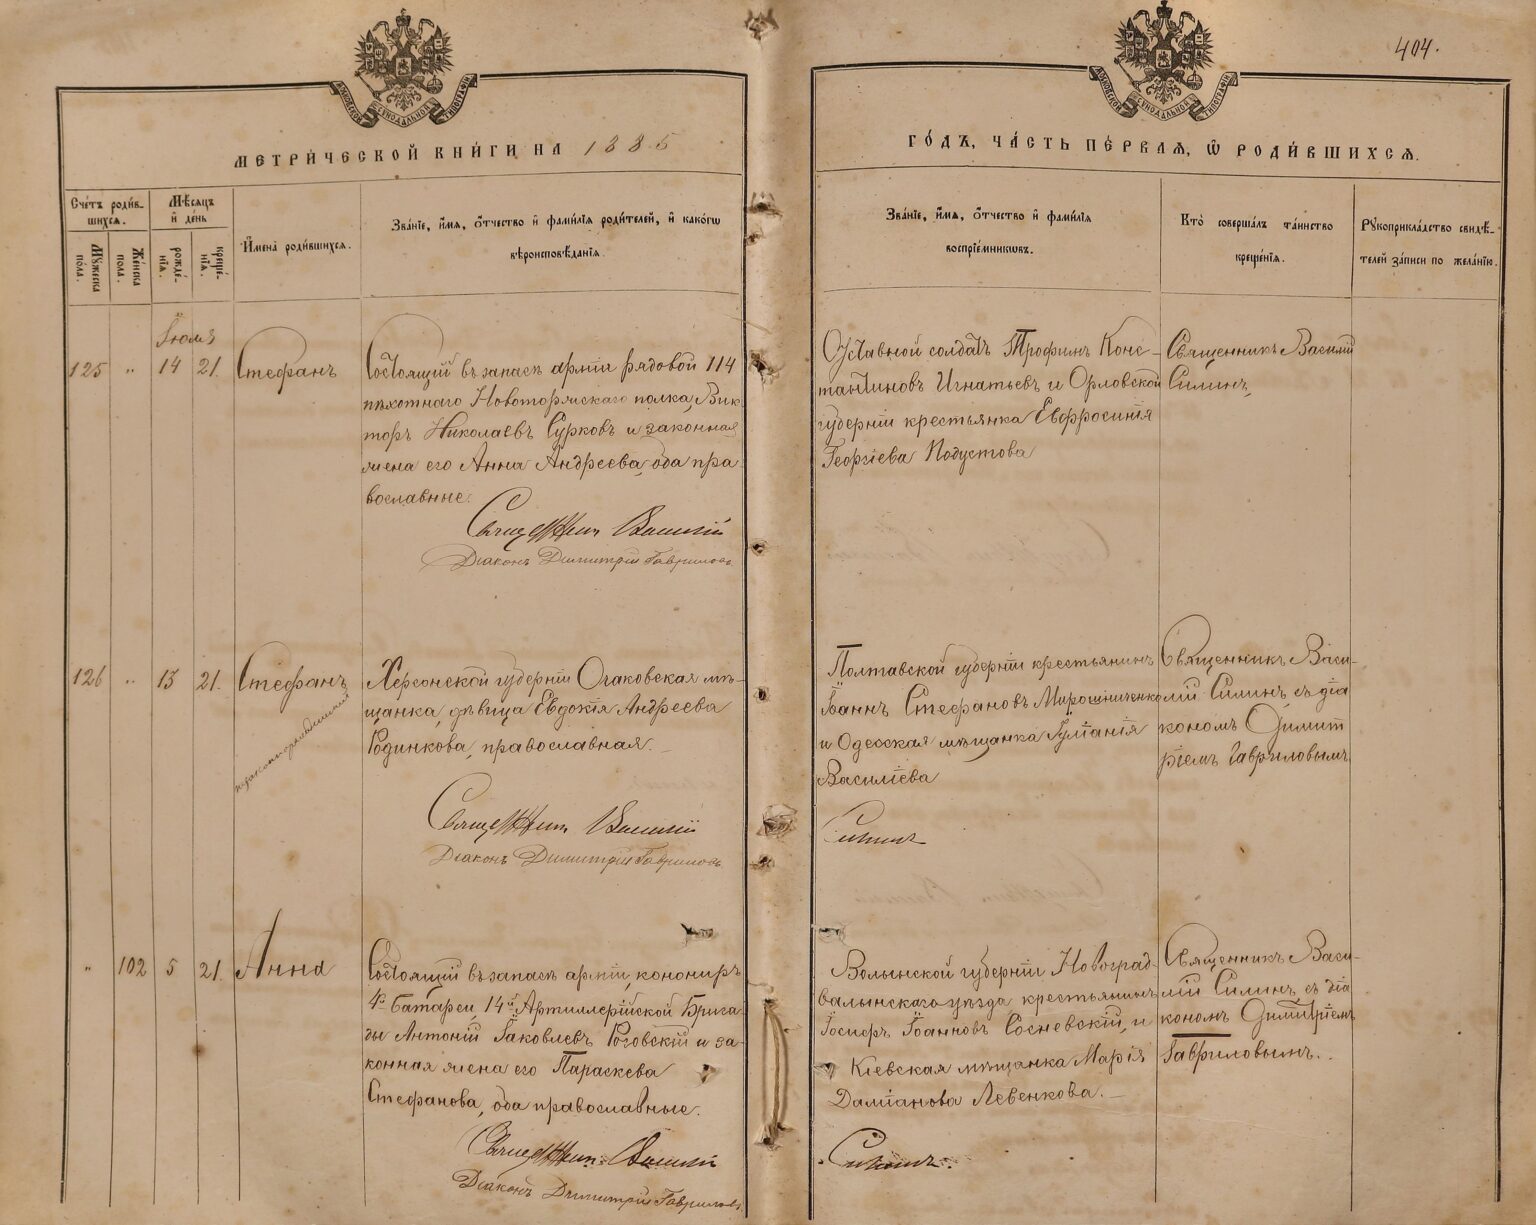 404.
МОСКОВСКОЙ СѴНОДАЛЬНОЙ ТИПОГРАФІИ
МОСКОВСКОЙ СѴНОДАЛЬНОЙ ТИПОГРАФІИ
МЕТРИ́ЧЕСКОЙ КНИ́ГИ НА 1885
ГО́ДЪ, ЧА́СТЬ ПЕ́РВАѦ, Ѡ҆ РОДИ́ВШИХСѦ.
Сче́тъ роди́в-
шихсѧ.
Мꙋ́жеска по́ла.
Же́нска пола.
Мѣ́сѧцъ
и҆ де́нь
рожде́-
нїѧ.
креще́-
нїѧ.
И҆мена̀ роди́вшихсѧ.
Зва́нїе, и҆́мѧ, ѻ҆́тчество и҆ фами́лїѧ роди́телей, и҆ како́гѡ
вѣроисповѣ́данїѧ.
Зва́нїе, и҆́мѧ, ѻ҆́тчество и҆ фами́лїѧ
воспрїе́мникѡвъ.
Кто̀ соверша́лъ та́инство
креще́нїѧ.
Рꙋкоприкла́дство свидѣ́-
телей за́писи по жела́нїю.
Іюля
125 " 14 21. Стефанъ
Состоящій въ запасѣ арміи рядовой 114
пѣхотнаго Новоторжскаго полка, Вик
торъ Николаевъ Сурковъ и законная
жена его Анна Андреева, оба пра-
вославные.
Священник Василій
Діаконъ Димитрій Гавриловъ
Отставной солдатъ Трофимъ Конс-
тантиновъ Игнатьевъ и Орловской
губерніи крестьянка Евфросинія
Георгіева Подустова
Священникъ Василій
Силинъ,
126 " 13 21. Стефанъ
незаконнорожденный
Херсонской губерніи Очаковская мѣ-
щанка, дѣвица Евдокія Андреева
Родинкова, православная.
Священник Василій
Діаконъ Димитрій Гавриловъ
Полтавской губерніи крестьянинъ
Іоаннъ Стефановъ Мирошниченко
и Одесская мѣщанка Іуліанія
Василіева
Силинъ
Священникъ Васи-
лій Силинъ, съ діа
кономъ Димит
ріемъ Гавриловымъ
" 102 5 21. Анна
Состоящій въ запасѣ арміи, конониръ
4й батареи, 14й Артиллерійской Брига
ды Антоній Іаковлевъ Роговскій и за-
конная жена его Параскева
Стефанова, оба православные.
Священник Василій
Діаконъ Димитрій Гавриловъ
Волынской губерніи Новоград-
валынскаго уѣзда крестьянинъ
Іосифъ Іоанновъ Сосневскій, и
Кіевская мѣщанка Марія
Даміанова Левенкова.
Силинъ.
Священникъ Васи-
лій Силинъ, съ діа
кономъ Димитріемъ
Гавриловымъ.